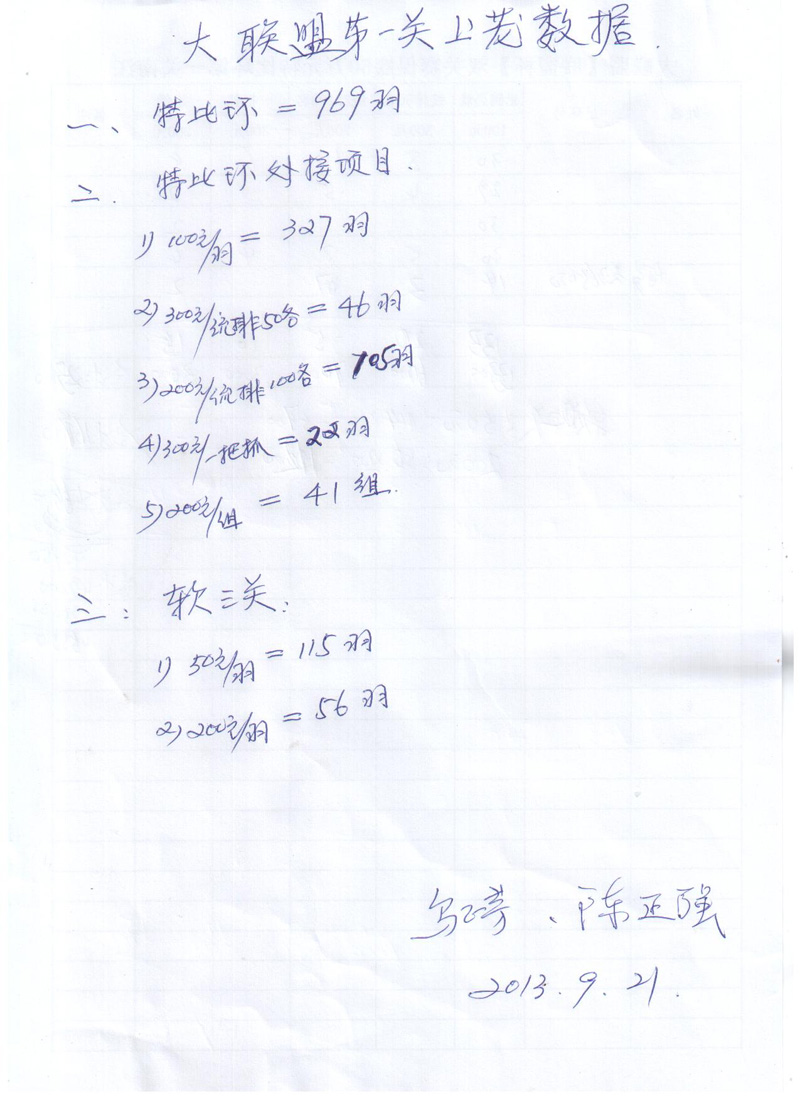 大联盟第一关上笼数据.
一、特比环=969羽
二.特比环外接项目.
1) 100元/羽=327羽
2) 300元/统排50名=46羽
3) 200元/统排100名=105羽
4) 300元/一把抓=22羽
5) 200元/组=41组.
三：软三关：
1) 50元/羽=115羽
2) 200元/羽=56羽
、陈正强
2013.9.21.